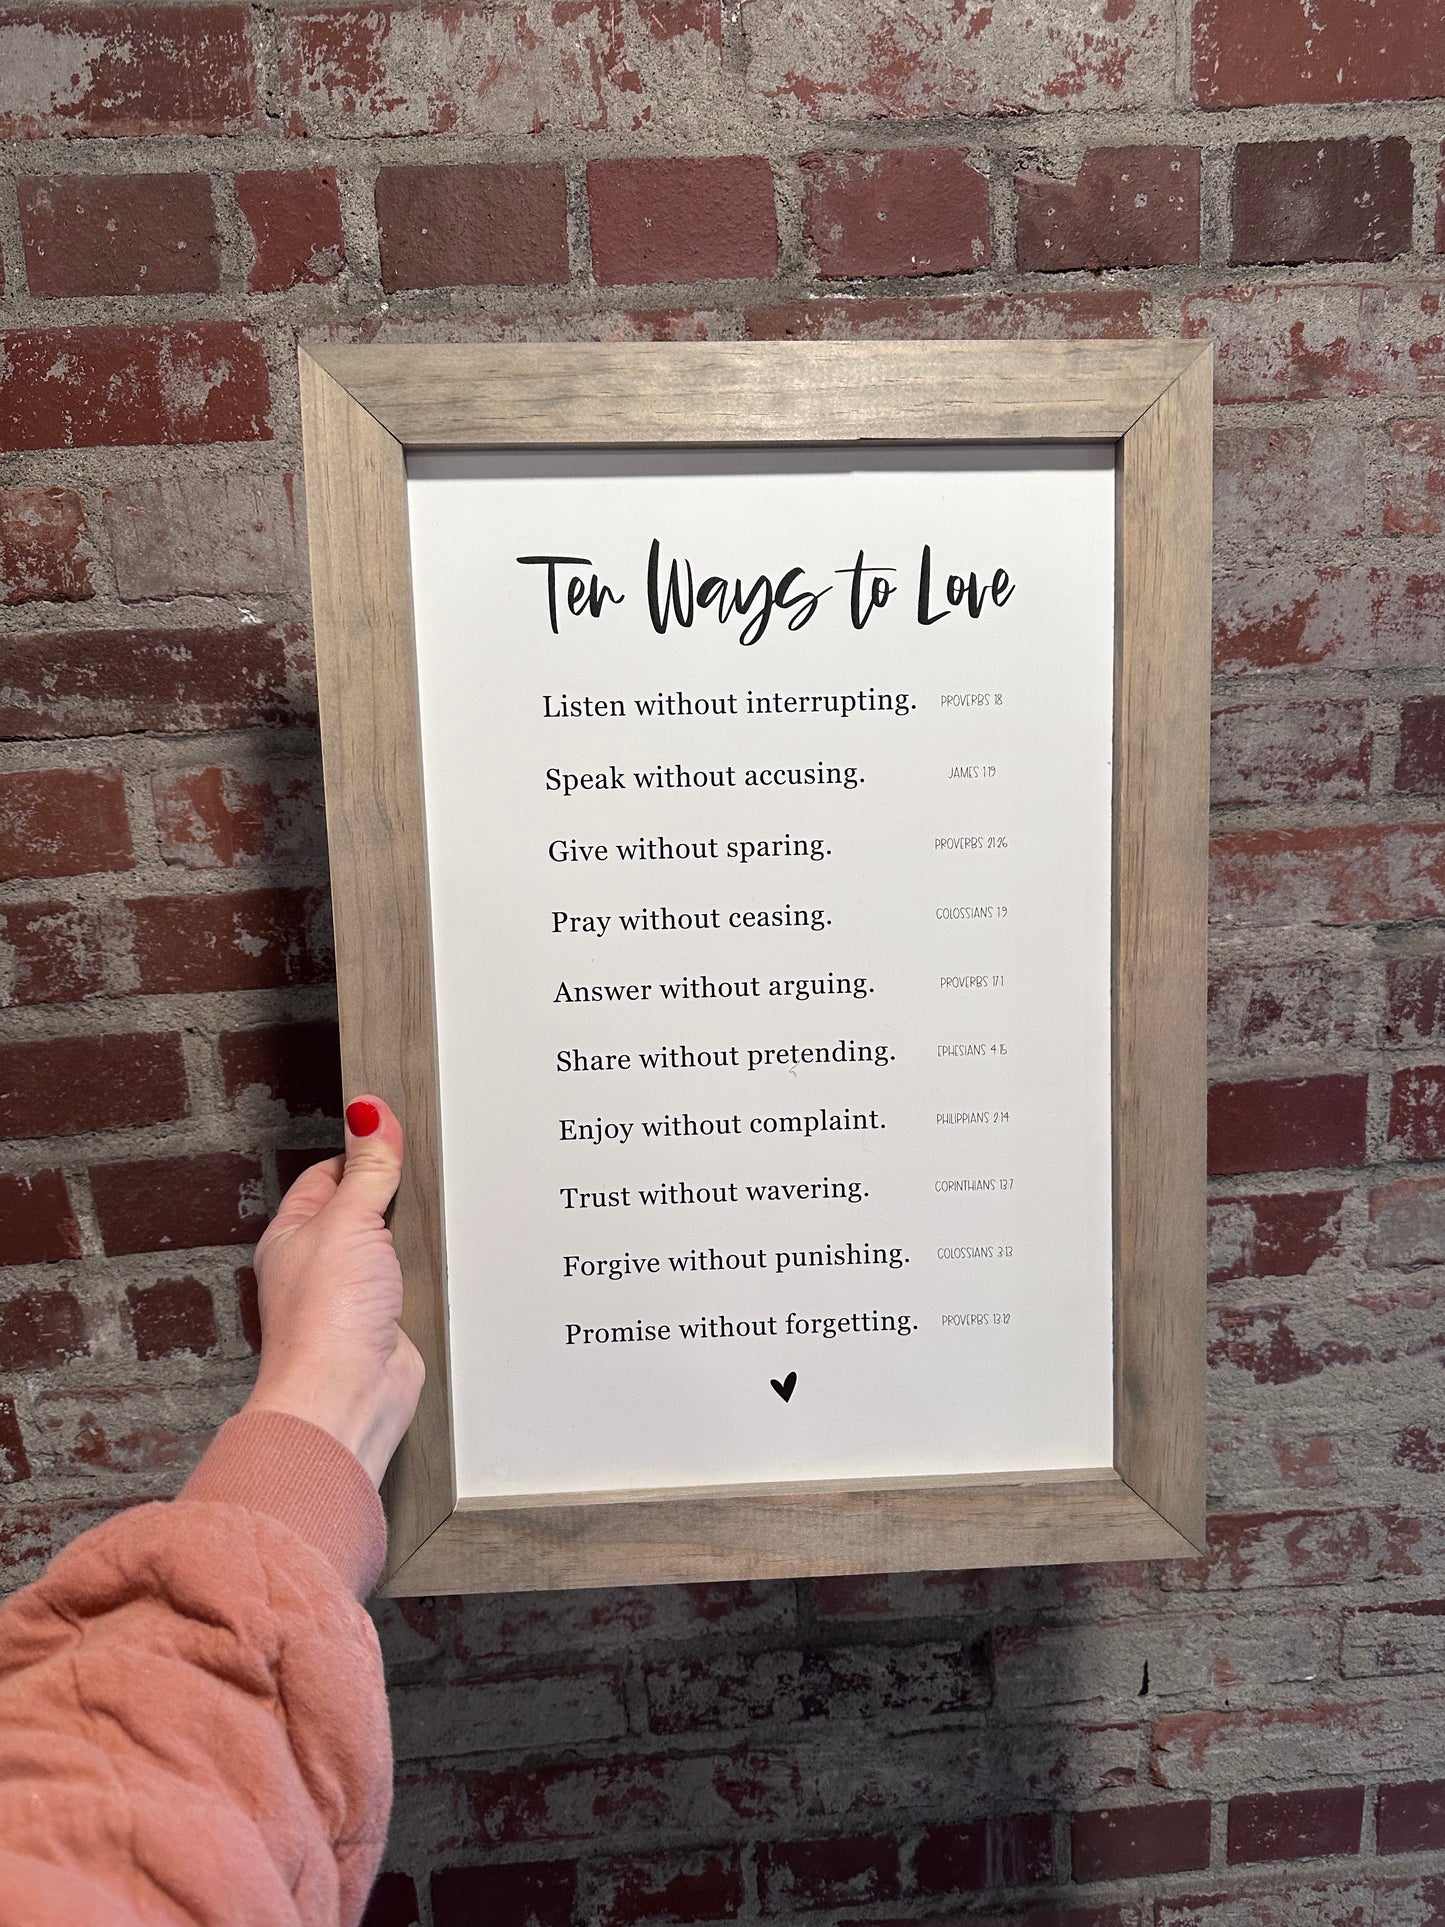 Ten Ways to Love
Listen without interrupting. PROVERBS 18
Speak without accusing. JAMES 1:19
Give without sparing. PROVERBS 21:26
Pray without ceasing. COLOSSIANS 1:9
Answer without arguing. PROVERBS 17:1
Share without pretending. EPHESIANS 4:15
Enjoy without complaint. PHILIPPIANS 2:14
Trust without wavering. CORINTHIANS 13:7
Forgive without punishing. COLOSSIANS 3:13
Promise without forgetting. PROVERBS 13:12